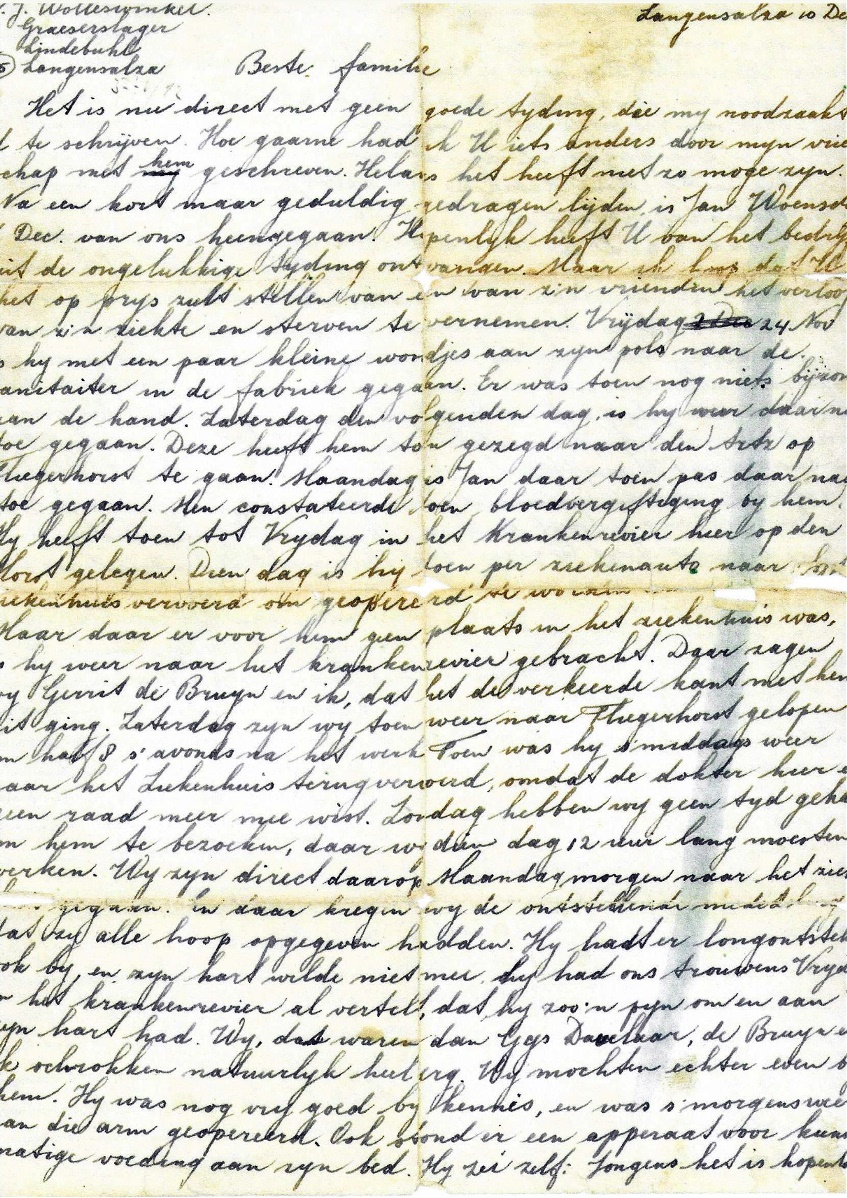 . J. Wolleswinkel.
Graeserslager
Lindebuhl
Langensalza
Langensalza 10 De
Beste familie
Het is nu direct met geen goede tyding, die my noodzaakt
te schrijven. Hoe gaarne had ik U iets anders door myn vrie
chap met hem geschreven. Helaas het heeft niet zo moge zyn.
Na een kort maar geduldig gedragen lijden is Jan Woensd
Dec. van ons heengegaan. Hopenlyk heeft U van het bedrij
uit de ongelukkige tyding ontvangen. Maar ik hoop dat U
het op prys zult stellen van en van z'n vrienden het verloop
van z'n ziekte en sterven te vernemen. Vrijdag 24 Nov
s hy met een paar kleine wondjes aan zyn pols naar de
anitaiter in de fabriek gegaan. Er was toen nog niets bijzon
aan de hand. Zaterdag den volgenden dag, is hy weer daar na
toe gegaan. Deze heeft hem toen gezegd naar den Artz op
Fliegerhorst te gaan. Maandag is Jan daar toen pas daar naa
toe gegaan. Men constateerde toen bloedvergiftiging by hem.
Hy heeft toen tot Vrydag in het Krankenrevier hier op den
Horst gelegen. Dien dag is hy toen per ziekenauto naar
ziekenhuis vervoerd om geopereerd te worden
Maar daar er voor hem geen plaats in het ziekenhuis was,
s hy weer naar het krankenrevier gebracht. Daar zagen
wy Gerrit de Bruyn en ik, dat het de verkeerde kant met hem
uit ging. Zaterdag zyn wy toen weer naar Fliegerhorst gelopen
om half 8 s'avonds na het werk Toen was hy s'middags weer
naar het Ziekenhuis terugvervoerd, omdat de dokter hier e
geen raad meer mee wist. Zondag hebben wy geen tyd geha
om hem te bezoeken, daar wy dien dag 12 uur lang moesten
werken. Wy zyn direct daarop Maandagmorgen naar het zie
gegaan. En daar kregen wy de ontstellende
dat zy alle hoop opgegeven hadden. Hy hadt er longontstek
ook by, en zyn hart wilde niet mee. hy had ons trouwens Vryd
n het krankenrevier al vertelt, dat hy zoo'n pyn om en aan
zyn hart had. Wy, dat waren dan Gys Davelaar, de Bruyn e
k schrokken natuurlyk heel erg. Wy mochten echter even b
hem. Hy was nog vry goed by kennis, en was s'morgens wee
aan die arm geopereerd. Ook stond er een apparaat voor kuns
matige voeding aan zyn bed. Hy zei zelf: Jongens het is hopenlo